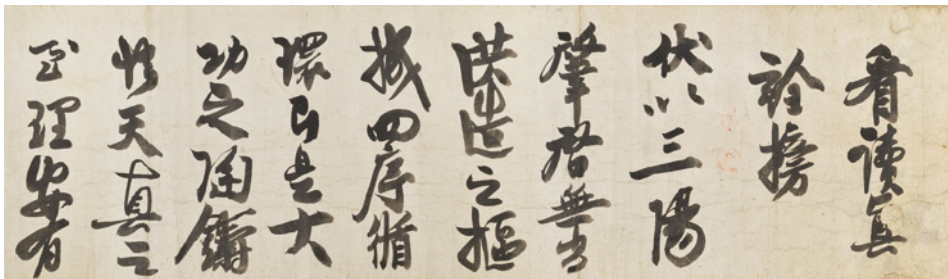 看讀真
詮搒
伏以三陽
肇啓無
洪造之樞
掝四序循
環即是大
功之陶鑄
悟天真之
至理安有